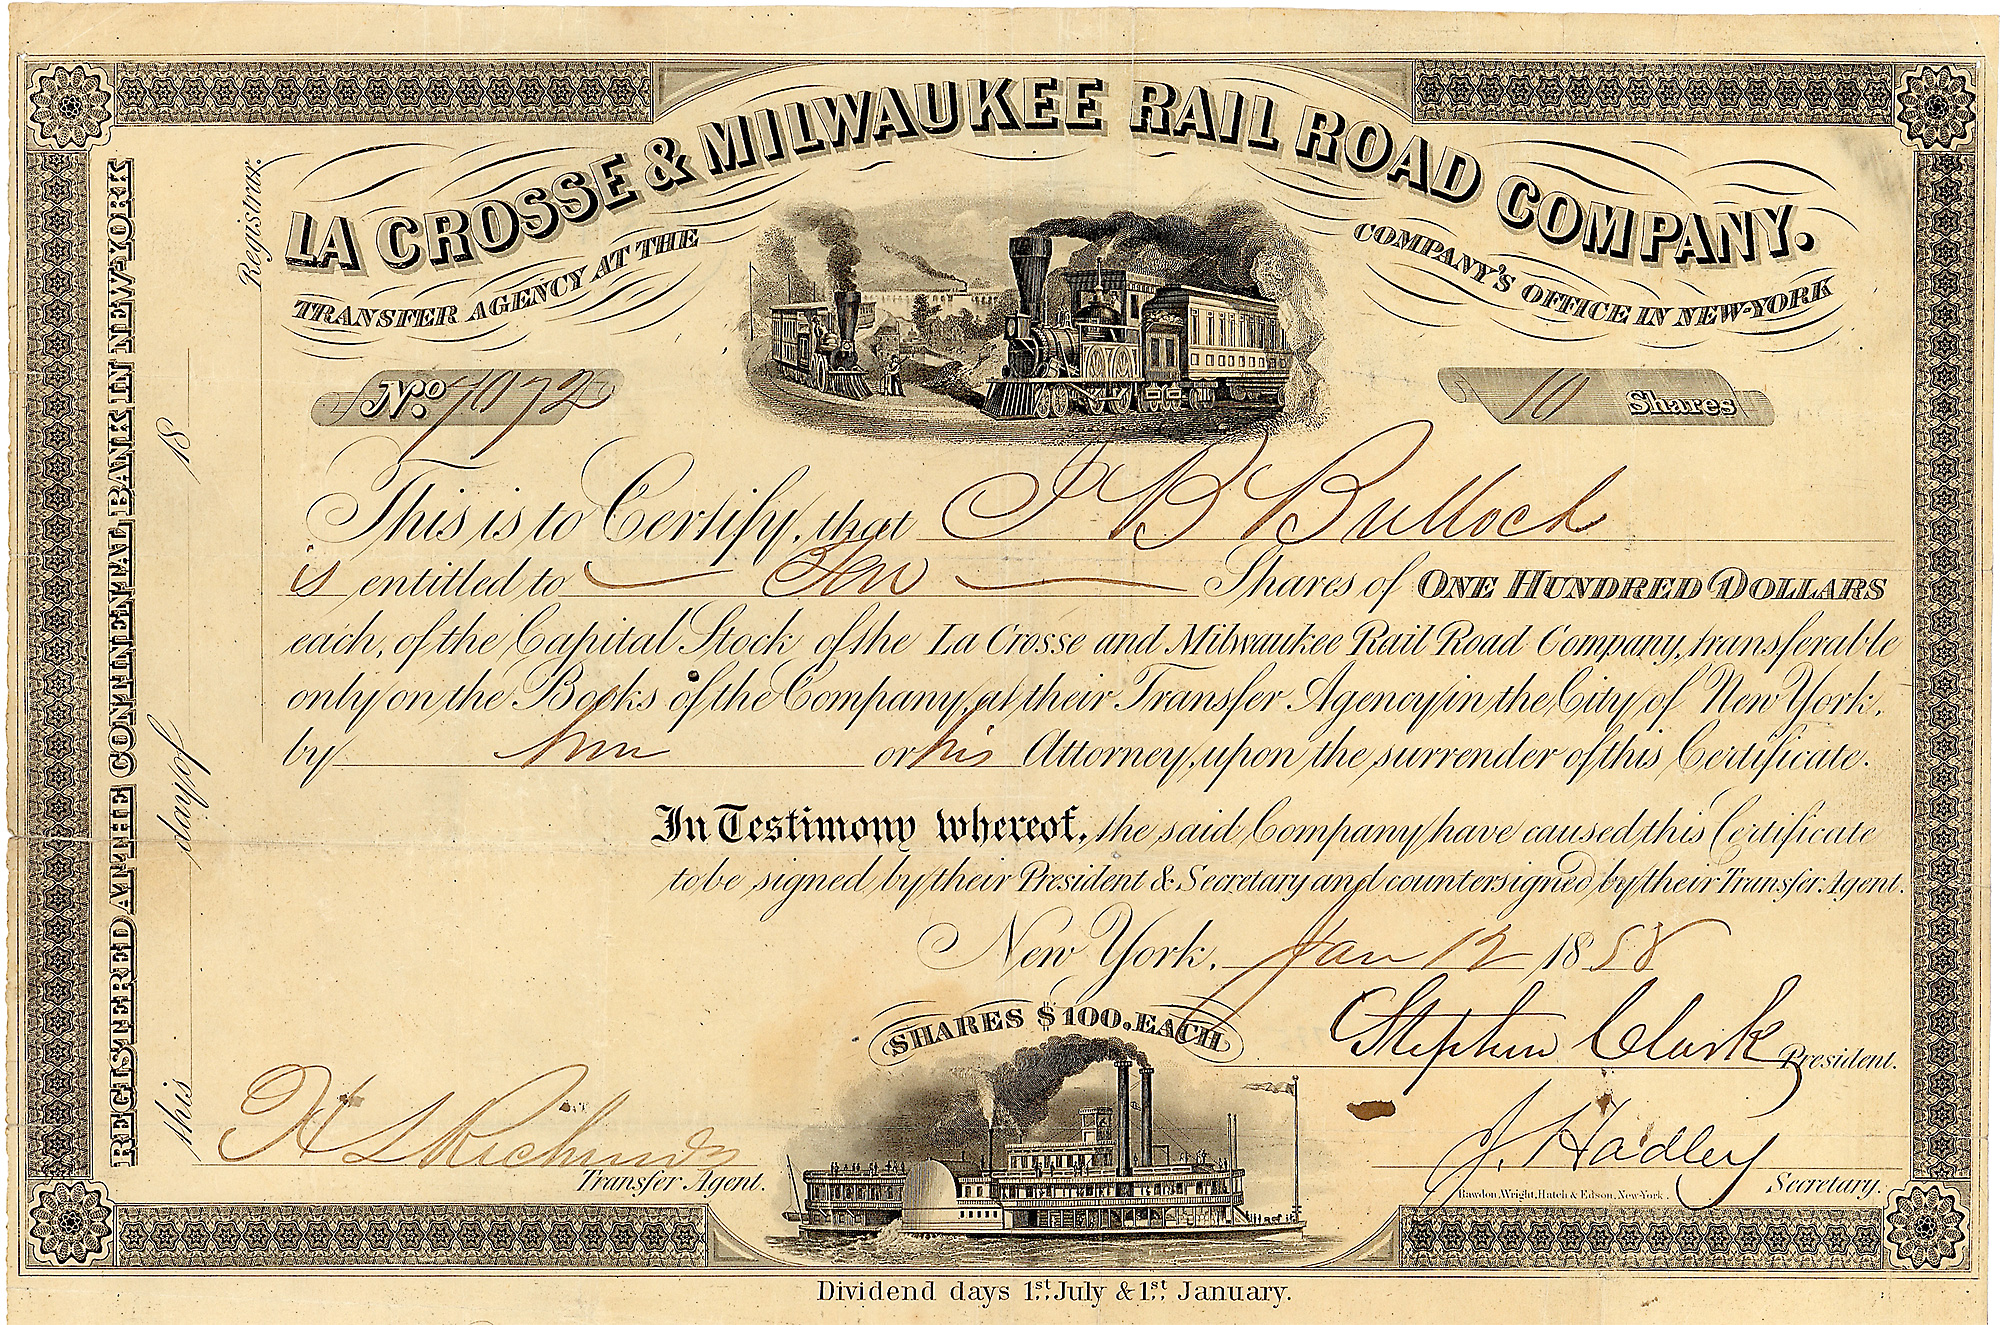 LA CROSSE & MILWAUKEE RAIL ROAD COMPANY.
TRANSFER AGENCY AT THE COMPANY'S OFFICE IN NEW-YORK
No. 7072
10 Shares
This is to Certify, that J B Bulloch
is entitled to Ten Shares of ONE HUNDRED DOLLARS
each, of the Capital Stock of the La Crosse and Milwaukee Rail Road Company, transferable
only on the Books of the Company, at their Transfer Agency in the City of New York,
by him or his Attorney, upon the surrender of this Certificate.
In Testimony whereof, the said Company have caused this Certificate
to be signed by their President & Secretary and countersigned by their Transfer Agent.
New York, Jan 12 1858
SHARES $100. EACH
Stephen Clark President.
J. Hadley Secretary.
Transfer Agent.
Rawdon, Wright, Hatch & Edson, New-York.
Dividend days 1st July & 1st January.
REGISTERED AT THE CONTINENTAL BANK IN NEW-YORK
this day of 18
Registrar.